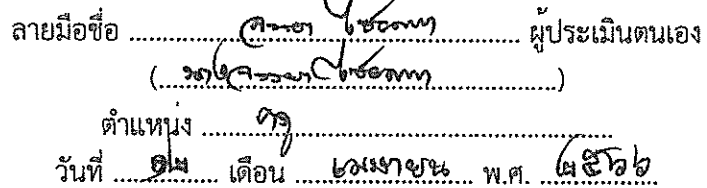 ลายมือชื่อ ........................................ ผู้ประเมินตนเอง
(นาง ........................................)
ตำแหน่ง ครู ........................................
วันที่ ............ เดือน เมษายน พ.ศ. ๒๕๖๖